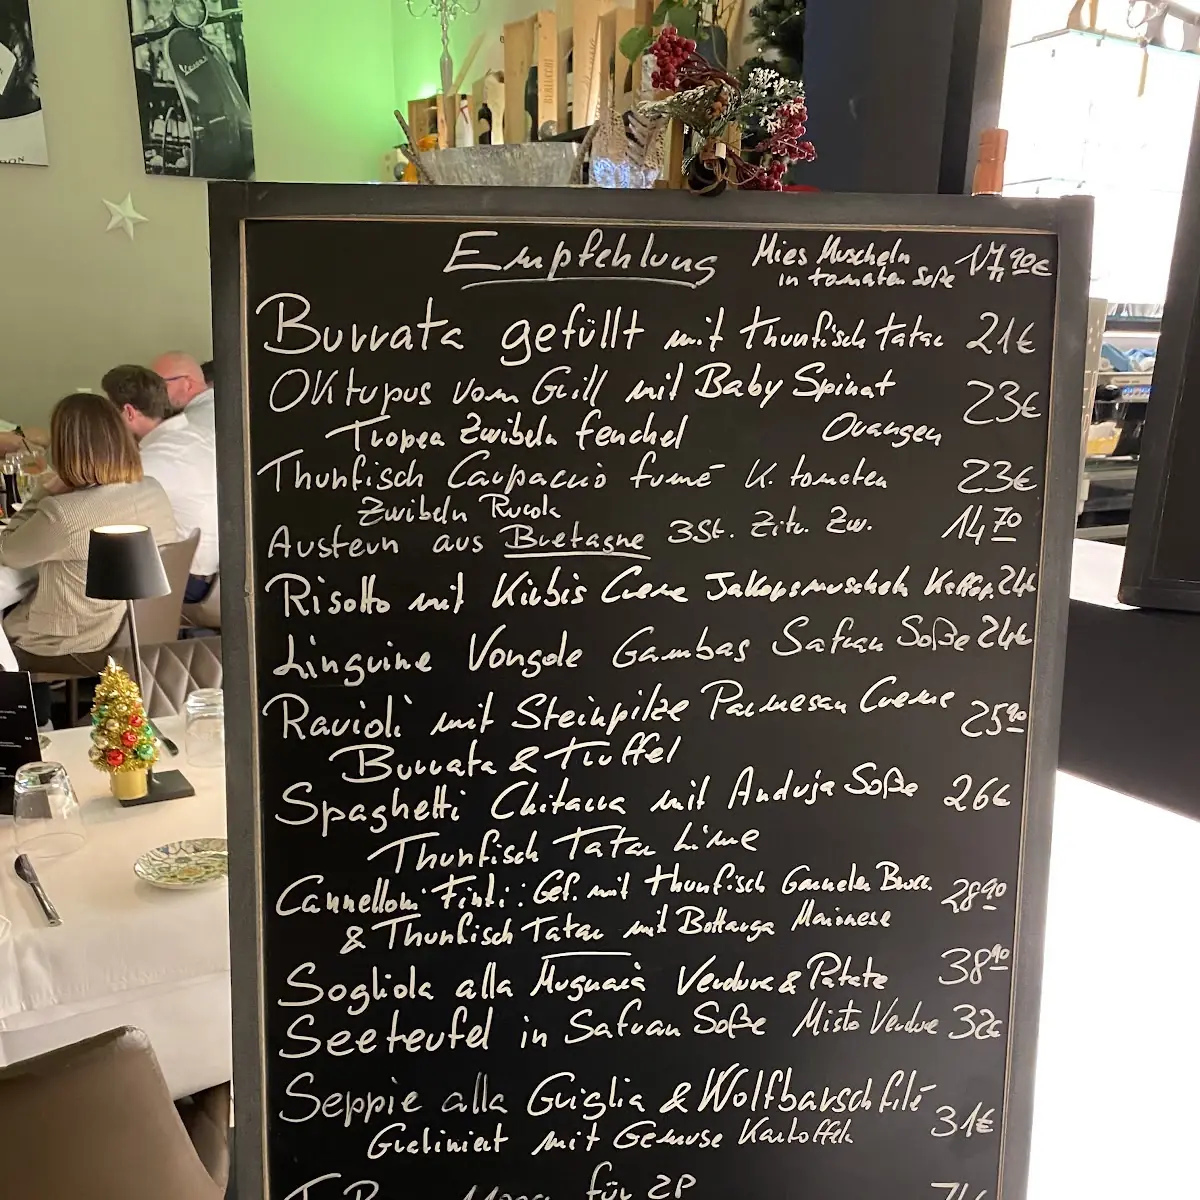 Vespa
BERLUCCHI
Empfehlung
Mies Muscheln 17,90€
in tomaten Soße
Burrata gefüllt mit thunfisch tatar 21€
Oktupus vom Grill mit Baby Spinat 23€
Tropea Zwibeln fenchel Orangen
Thunfisch Carpaccio fumé K. tomaten 23€
Zwibeln Rucola
Austern aus Bretagne 3St. Zitr. Zw. 14 70
Risotto mit Kürbis Creme Jakopsmuscheln 24€
Linguine Vongole Gambas Safran Soße 24€
Ravioli mit Steinpilze Parmesan Creme 25 90
Burrata & Trüffel
Spaghetti Chitarra mit Anduja Soße 26€
Thunfisch Tatar Lime
Cannelloni Finti: Gef. mit thunfisch Garnelen Brocc. 28 90
& Thunfisch Tatar mit Bottarga Maionese
Sogliola alla Mugnaia Verdure & Patate 38 90
Seeteufel in Safran Soße Misto Verdure 32€
Seppie alla Griglia & Wolfbarschfilé 31€
Gratiniert mit Gemüse Kartoffeln
für 2P